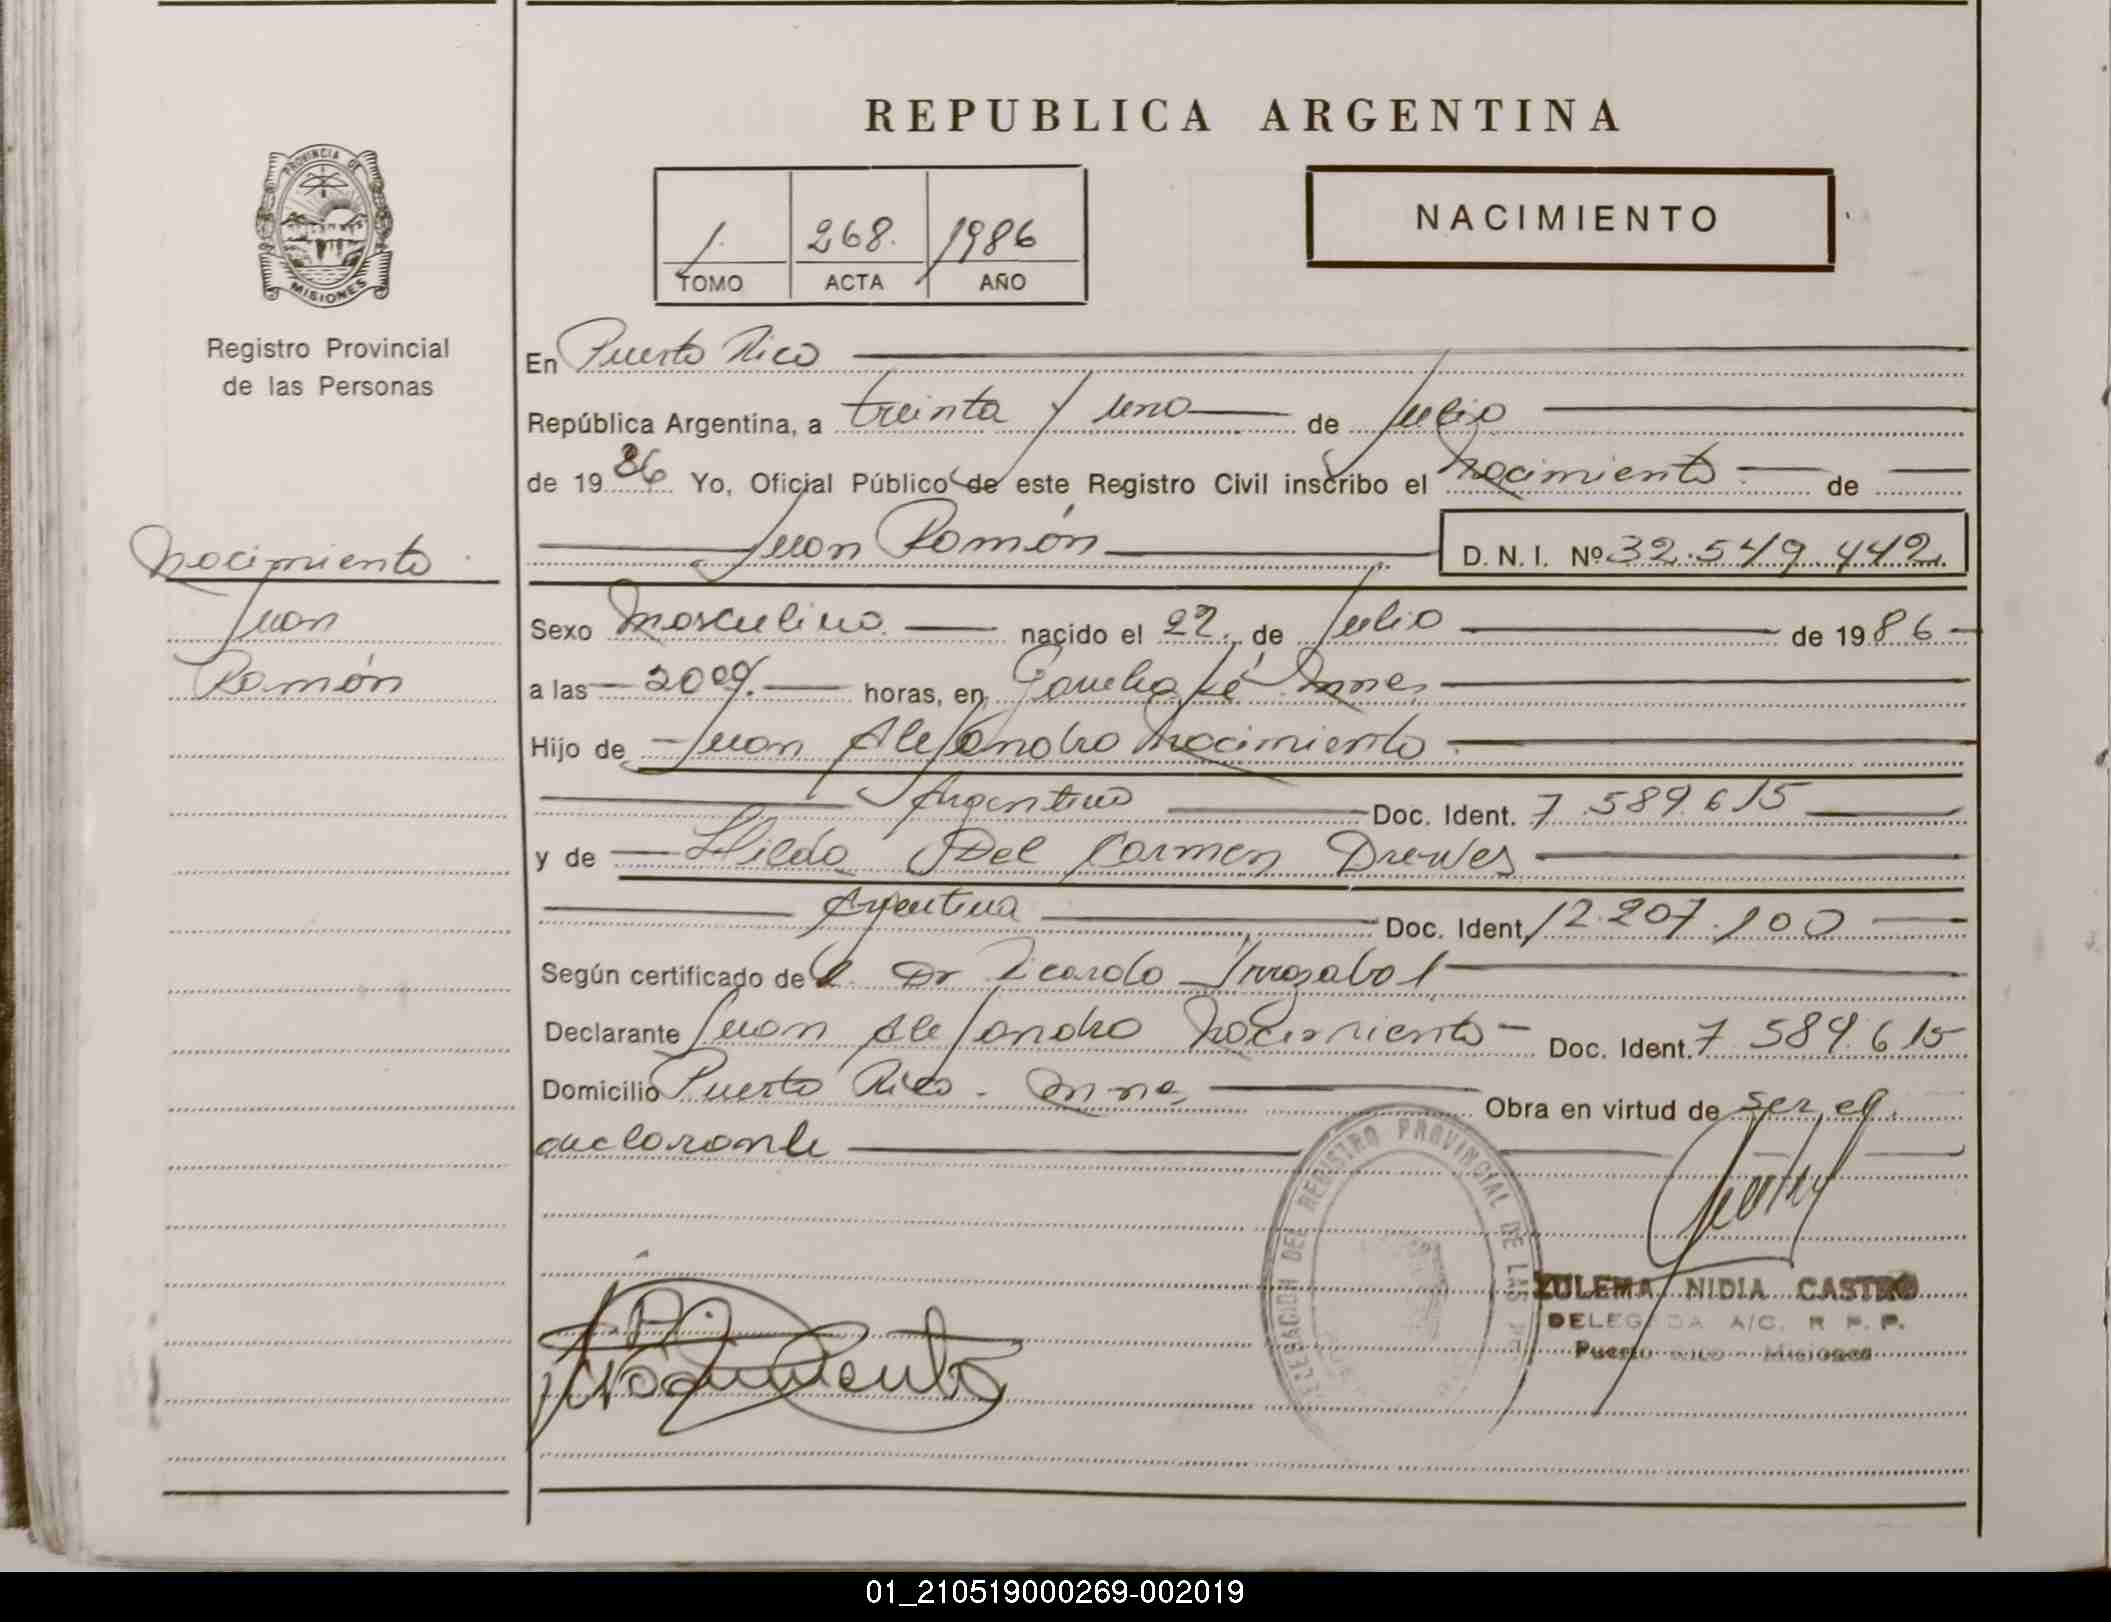 REPUBLICA ARGENTINA
PROVINCIA DE
MISIONES
Registro Provincial
de las Personas
1. 268. 1986
TOMO ACTA AÑO
NACIMIENTO
En Puerto Rico
República Argentina, a treinta y uno de Julio
de 1986 Yo, Oficial Público de este Registro Civil inscribo el Nacimiento de
Juan Ramón D. N. I. Nº 32.549.442.
Nacimiento
Juan
Ramón
Sexo Masculino nacido el 22 de Julio de 1986
a las 2009. horas, en Garuhapé Mnes
Hijo de Juan Alejandro Nacimiento
Argentino Doc. Ident. 7.589.615
y de Hilda Del Carmen Drewes
Argentina Doc. Ident. 12.207.100
Según certificado del Dr Ricardo Irrazabal
Declarante Juan Alejandro Nacimiento Doc. Ident. 7.589.615
Domicilio Puerto Rico - Mnes Obra en virtud de ser el
declarante
DELEGACION DEL REGISTRO PROVINCIAL DE LAS
ZULEMA NIDIA CASTRO
DELEGADA A/C. R. P. P.
Puerto Rico - Misiones
Nacimiento
01_210519000269-002019